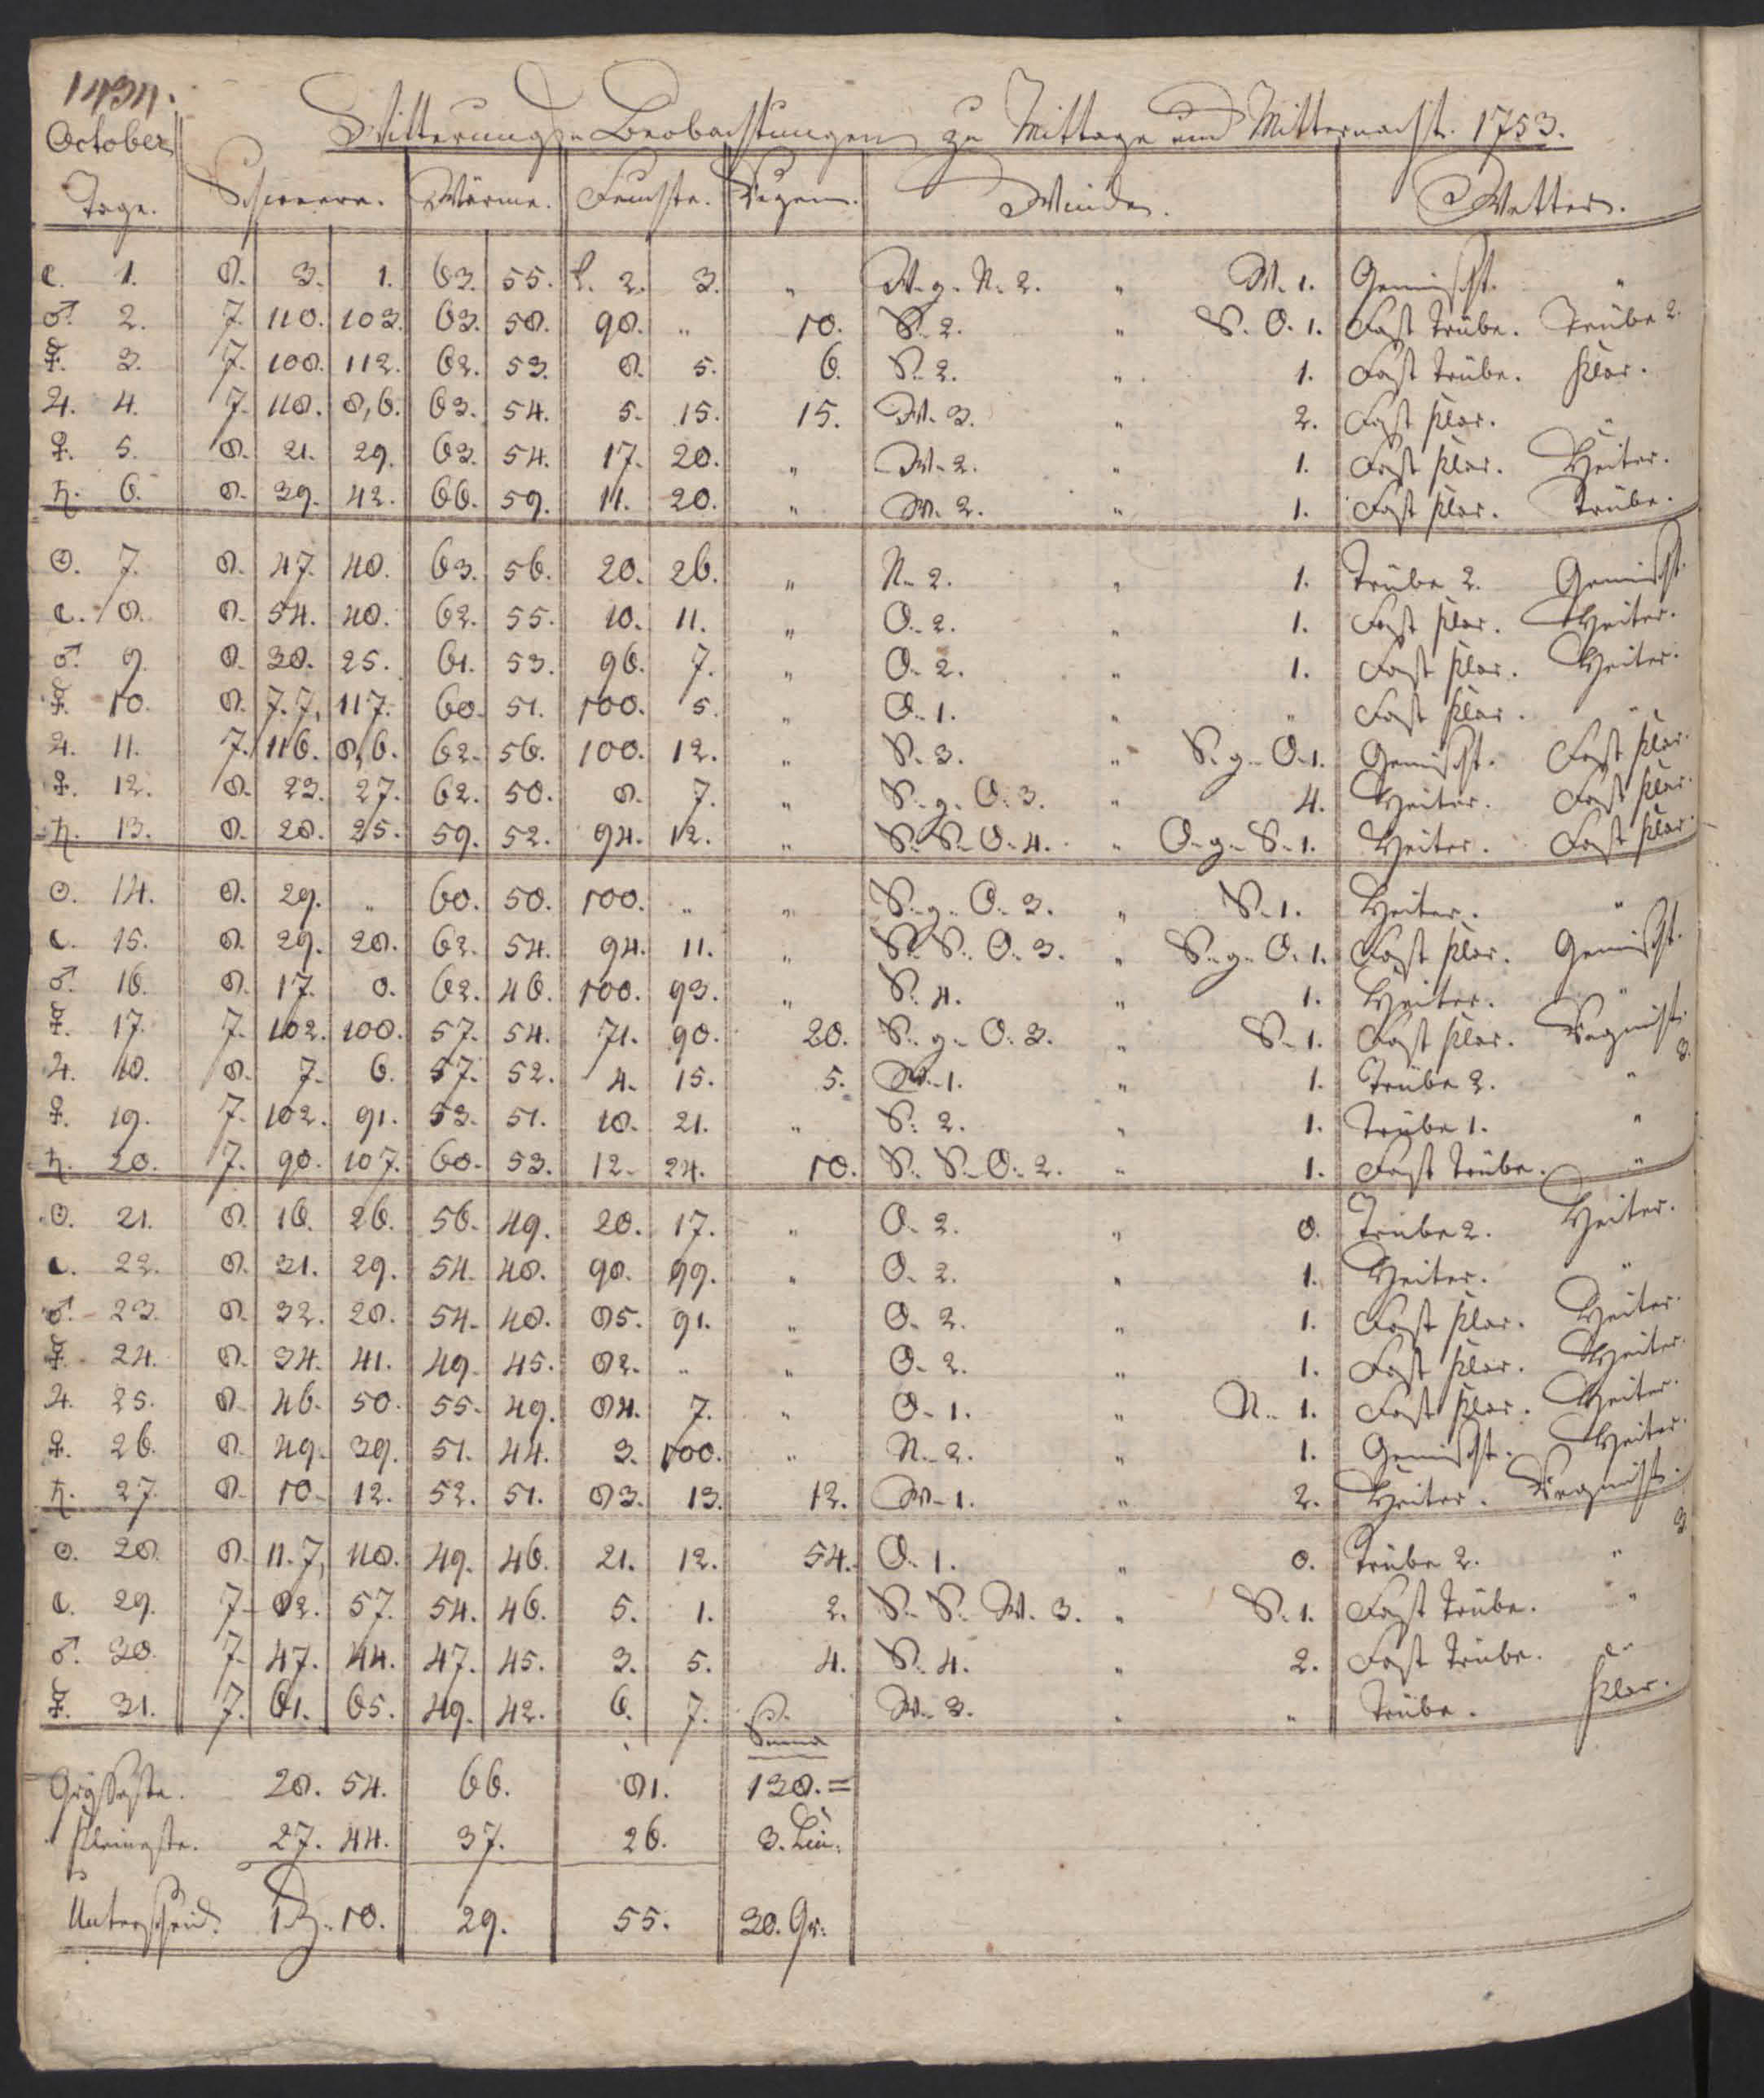 October
Witterungs-Beobachtungen zu Mittage und Mitternacht. 1753.
Tage. Schwere. Wärme. Feuchte. Regen. Winde. Wetter.
☾. 1. 8. 3. 1. 63. 55. 2. 3. " W. g. N. 2. " W. 1. Gemischt. "
♂. 2. 7. 110. 103. 63. 58. 98. " 10. S. 2. " S. O. 1. Fast trübe. Trübe 2.
☿. 3. 7. 108. 112. 62. 53. 8. 5. 6. S. 2. " 1. Fast trübe. klar.
♃. 4. 7. 118. 8,6. 63. 54. 5. 15. 15. W. 3. " 2. Fast klar. "
♀. 5. 8. 21. 29. 63. 54. 17. 20. " W. 2. " 1. Fast klar. Heiter.
♄. 6. 8. 39. 42. 66. 59. 11. 20. " W. 2. " 1. Fast klar. Trübe.
☉. 7. 8. 47. 48. 63. 56. 20. 26. " N. 2. " 1. Trübe 2. Gemischt.
☾. 8. 8. 54. 48. 62. 55. 10. 11. " O. 2. " 1. Fast klar. Heiter.
♂. 9. 8. 38. 25. 61. 53. 96. 7. " O. 2. " 1. Fast klar. Heiter.
☿. 10. 8. 7. 7, 117. 60. 51. 100. 5. " O. 1. " " Fast klar. "
♃. 11. 7. 116. 8,6. 62. 56. 100. 12. " S. 3. " S. g. O. 1. Gemischt. Fast klar.
♀. 12. 8. 23. 27. 62. 50. 8. 7. " S. g. O. 3. " 4. Heiter. Fast klar.
♄. 13. 8. 28. 25. 59. 52. 94. 12. " S. S. O. 4. " O. g. S. 1. Heiter. Fast klar.
☉. 14. 8. 29. " 60. 50. 100. " " S. g. O. 3. " S. 1. Heiter. "
☾. 15. 8. 29. 28. 62. 54. 94. 11. " S. S. O. 3. " S. g. O. 1. Fast klar. Gemischt.
♂. 16. 8. 17. 0. 62. 46. 100. 93. " S. 4. " 1. Heiter. "
☿. 17. 7. 102. 100. 57. 54. 71. 90. 20. S. g. O. 3. " S. 1. Fast klar. Regnicht. 3.
♃. 18. 8. 7. 6. 57. 52. 4. 15. 5. W. 1. " 1. Trübe 2. "
♀. 19. 7. 102. 91. 53. 51. 18. 21. " S. 2. " 1. Trübe 1. "
♄. 20. 7. 90. 107. 60. 53. 12. 24. 10. S. S. O. 2. " 1. Fast trübe. "
☉. 21. 8. 16. 26. 56. 49. 20. 17. " O. 2. " 0. Trübe 2. Heiter.
☾. 22. 8. 31. 29. 54. 48. 98. 99. " O. 2. " 1. Heiter. "
♂. 23. 8. 32. 28. 54. 48. 85. 91. " O. 2. " 1. Fast klar. Heiter.
☿. 24. 8. 34. 41. 49. 45. 82. " " O. 2. " 1. Fast klar. Heiter.
♃. 25. 8. 46. 50. 55. 49. 84. 7. " O. 1. " N. 1. Fast klar. Heiter.
♀. 26. 8. 49. 39. 51. 44. 3. 100. " N. 2. " 1. Gemischt. Heiter.
♄. 27. 8. 10. 12. 52. 51. 83. 13. 12. W. 1. " 2. Heiter. Regnicht. 3.
☉. 28. 8. 11. 7, 118. 49. 46. 21. 12. 54. O. 1. " 0. Trübe 2. "
☾. 29. 7. 82. 57. 54. 46. 5. 1. 2. S. S. W. 3. " S. 1. Fast trübe. "
♂. 30. 7. 47. 44. 47. 45. 3. 5. 4. S. 4. " 2. Fast trübe. "
☿. 31. 7. 61. 65. 49. 42. 6. 7. W. 3. " " Trübe. klar.
Summa
Grösseste. 28. 54. 66. 81. 138. =
Kleineste. 27. 44. 37. 26. 3. Lin.
Unterscheid. 1. Z. 10. 29. 55. 30. Gr.